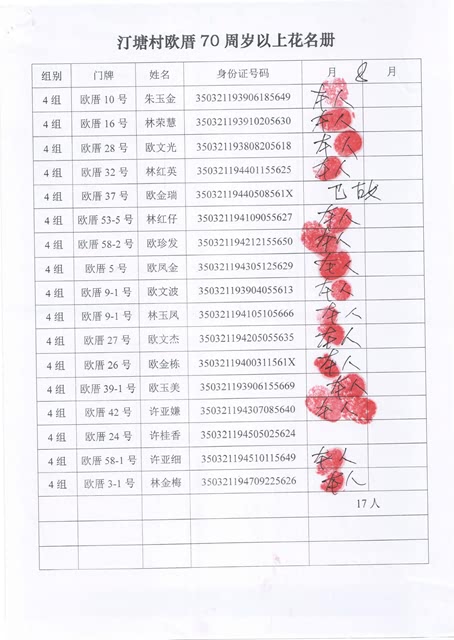 汀塘村欧厝 70 周岁以上花名册
组别 门牌 姓名 身份证号码 月 8 月
4 组 欧厝 10 号 朱玉金 350321193906185649 本人
4 组 欧厝 16 号 林荣慧 350321193910205630 本人
4 组 欧厝 28 号 欧文光 350321193808205618 本人
4 组 欧厝 32 号 林红英 350321194401155625 本人
4 组 欧厝 37 号 欧金瑞 35032119440508561X 已故
4 组 欧厝 53-5 号 林红仔 350321194109055627 本人
4 组 欧厝 58-2 号 欧珍发 350321194212155650 本人
4 组 欧厝 5 号 欧凤金 350321194305125629 本人
4 组 欧厝 9-1 号 欧文波 350321193904055613 本人
4 组 欧厝 9-1 号 林玉凤 350321194105105666 本人
4 组 欧厝 27 号 欧文杰 350321194205055635 本人
4 组 欧厝 26 号 欧金栋 35032119400311561X 本人
4 组 欧厝 39-1 号 欧玉美 350321193906155669 本人
4 组 欧厝 42 号 许亚嫌 350321194307085640 本人
4 组 欧厝 24 号 许桂香 350321194505025624
4 组 欧厝 58-1 号 许亚细 350321194510115649 本人
4 组 欧厝 3-1 号 林金梅 350321194709225626 本人
17 人